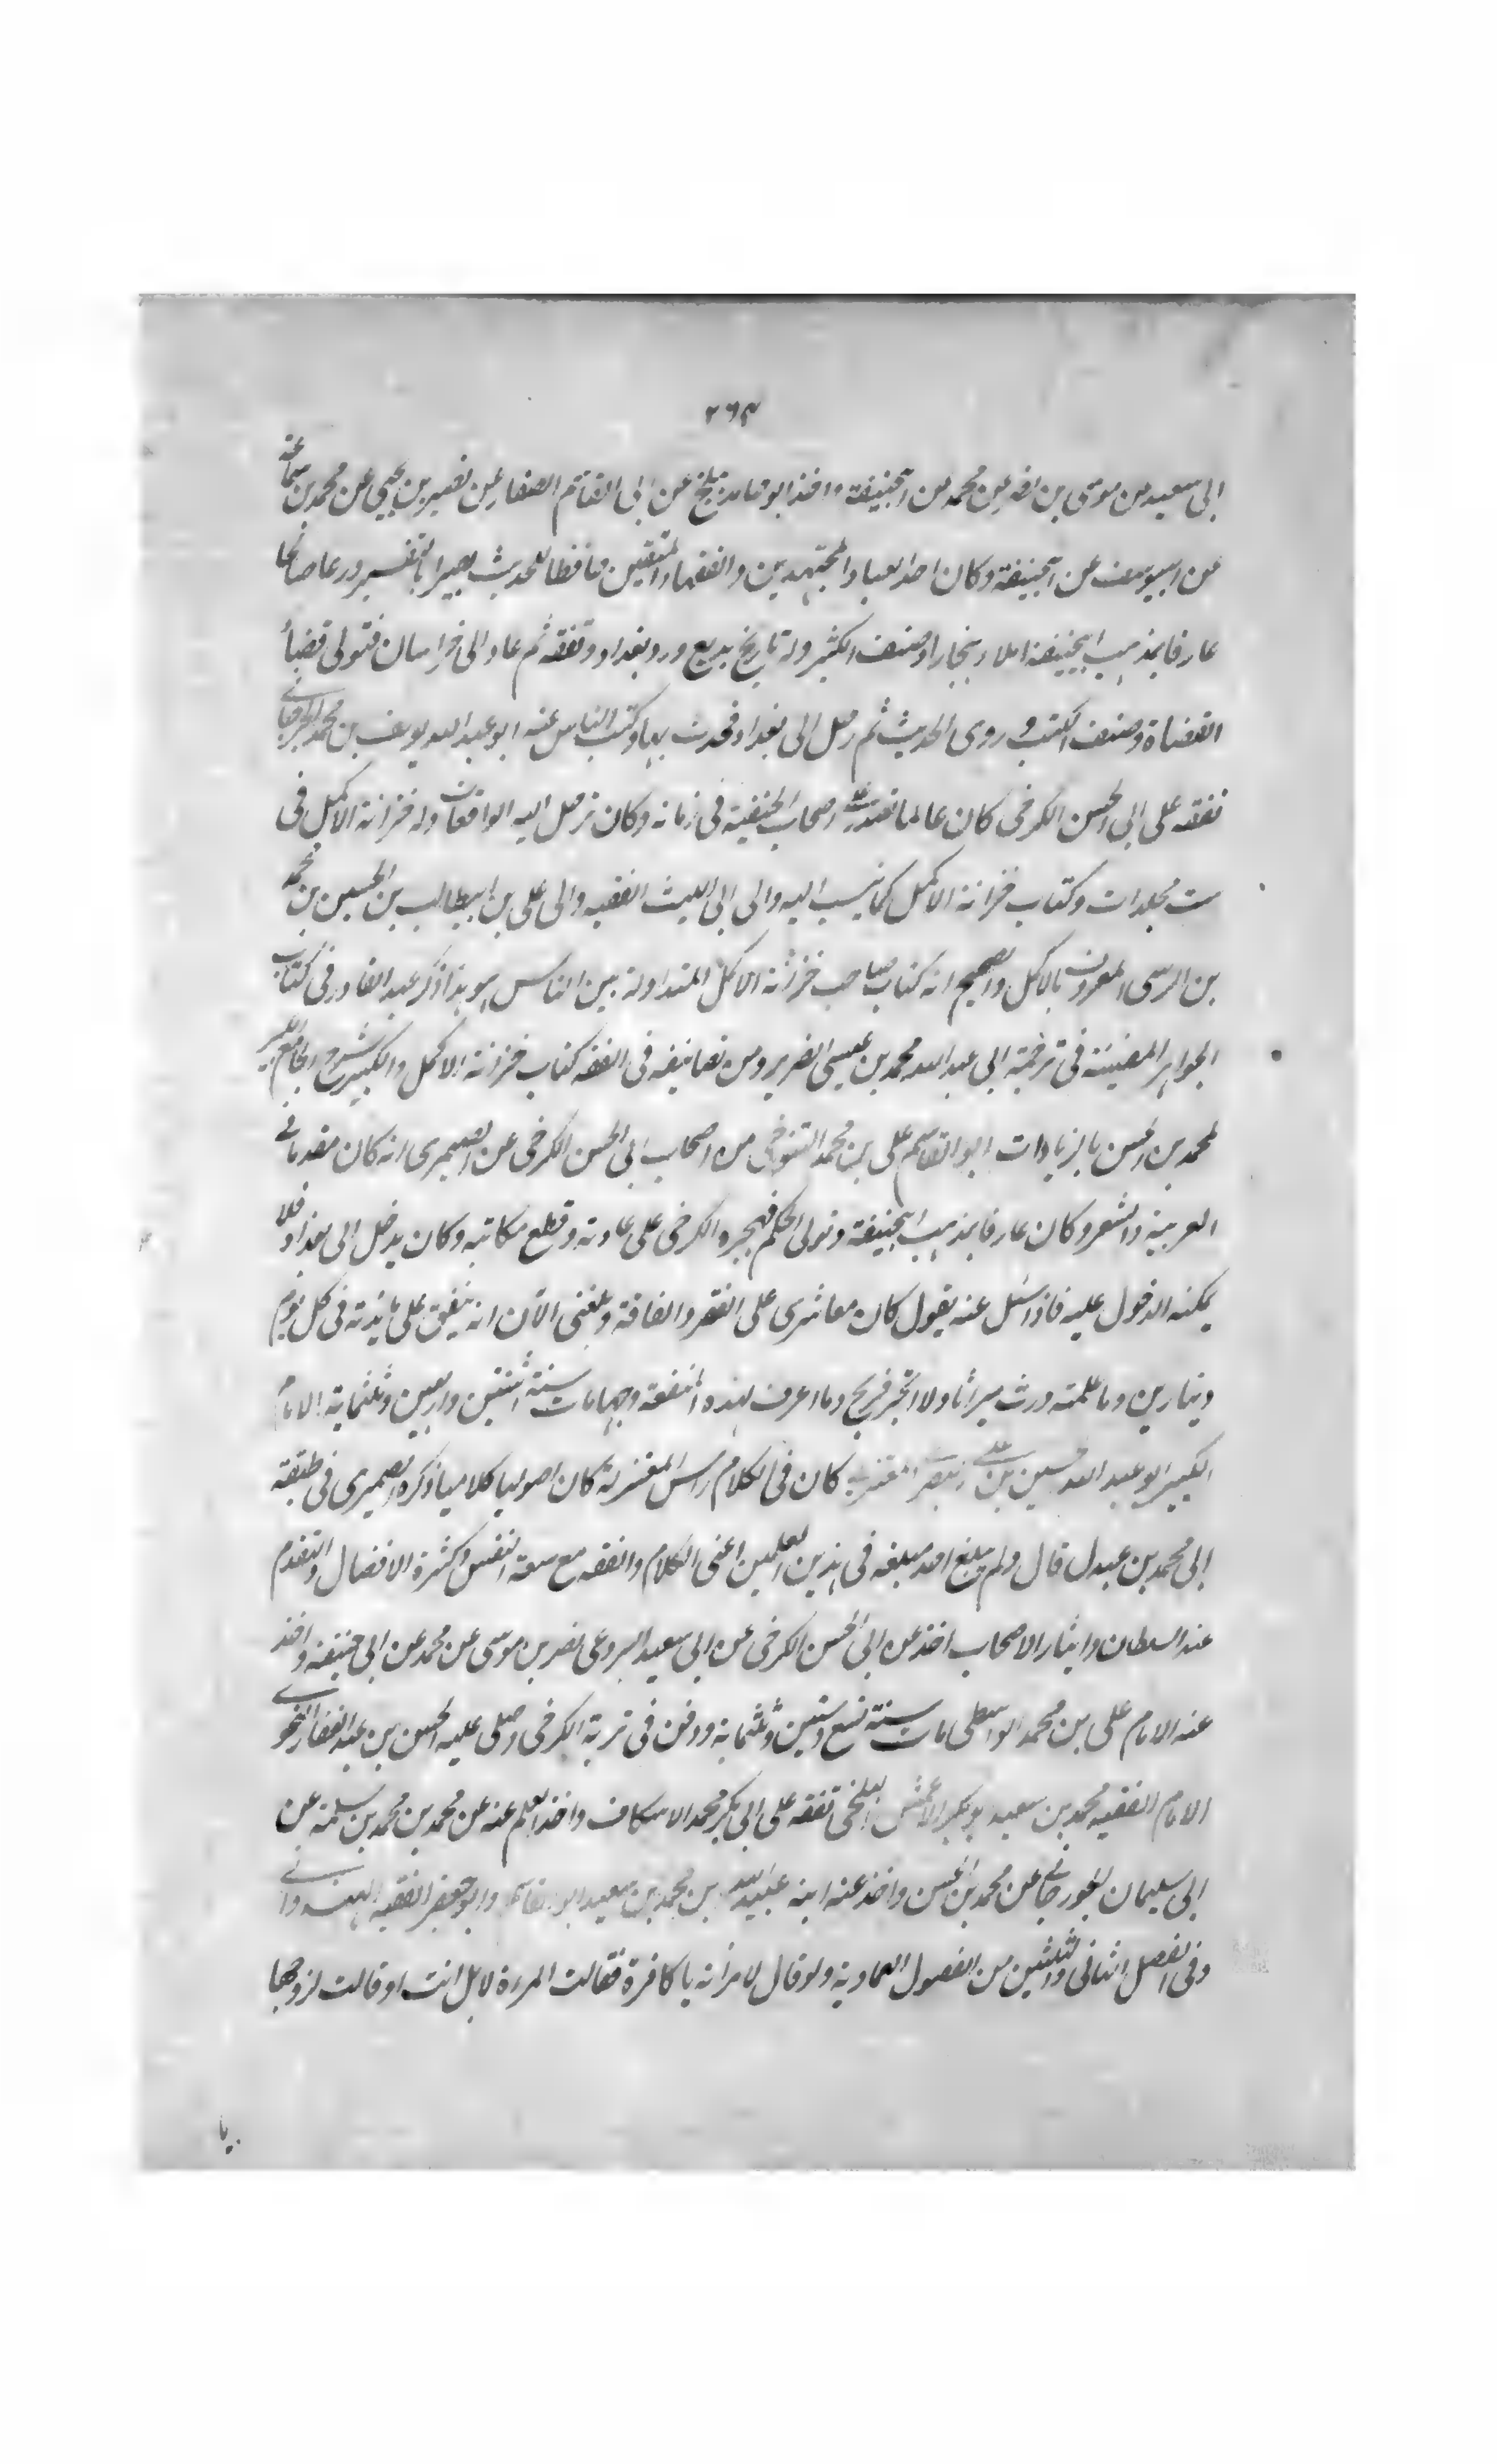 ٢٦٣
ابى سعيد عن موسى بن نصر عن محمد عن ابيحنيفة واخذ ابو حامد ببلخ عن ابى القاسم الصفار عن نصير بن يحيى عن محمد بن سماعة
عن ابيوسف عن ابيحنيفة وكان احد العباد المجتهدين والفقهاء المتقنين حافظا للحديث بصيرا بالتفسير ورعا صالحا
عارفا بمذهب ابيحنيفة املاء ببخارا وصنف الكثير وله تاريخ بديع ورد بغداد وتفقه ثم عاد الى خراسان فتولى قضاء
القضاة وصنف الكتب وروى الحديث ثم رحل الى بغداد فحدث بها وكتب الناس عنه ابو عبد الله يوسف بن محمد الجرجانى
تفقه على ابى الحسن الكرخى كان عالما تقدم على اصحاب الحنفية فى زمانه وكان ترحل اليه الواقعات وله خزانة الاكمل فى
ست مجلدات وكتاب خزانة الاكمل كما ينسب اليه والى ابى الليث الفقيه والى على بن ابيطالب بن الحسين بن محمد
بن الرسى المعروف بالاكمل والصحيح انه كتاب صاحب خزانة الاكمل المتداولة بين الناس هو هذا ذكر عبد القادر فى كتاب
الجواهر المضيئة فى ترجمة ابى عبد الله محمد بن عيسى الضرير ومن تصانيفه فى الفقه كتاب خزانة الاكمل والكبير شرح الجامع الكبير
لمحمد بن الحسن بالزيادات ابو القاسم على بن محمد التنوخى من اصحاب ابى الحسن الكرخى عن الصيمرى انه كان مقدما فى
العربية والشعر وكان عارفا بمذهب ابيحنيفة وتولى الحكم فهجره الكرخى على عادته وقطع مكاتبه وكان يدخل الى بغداد فلا
يمكنه الدخول عليه فاذا سئل عنه يقول كان معاشرى على الفقر والفاقة وبلغنى الآن انه ينفق على مائدته فى كل يوم
دينارين وما علمته ورث ميراثا ولا اتجر فربح وما اعرف لهذه النفقة وجها مات سنة اثنتين واربعين وثلثماية الامام
الكبير ابو عبد الله حسين بن على البصرى المعتزلى كان فى الكلام راس المعتزلة كان اصوليا كلاميا ذكره الصيمرى فى طبقة
ابى محمد بن عبدل قال ولم يبلغ احد مبلغه فى هذين العلمين اعنى الكلام والفقه مع سعة النفس وكثرة الافضال والتقدم
عند السلطان وايثار الاصحاب اخذ عن ابى الحسن الكرخى عن ابى سعيد البردعى نصر بن موسى عن محمد عن ابى حنيفة واخذ
عنه الامام على بن محمد الواسطى مات سنة تسع وستين وثلثماية ودفن فى تربة الكرخى وصلى عليه الحسن بن عبد الغفار النحوى
الامام الفقيه محمد بن سعيد ابو بكر الاعمش البلخى تفقه على ابى بكر محمد الاسكاف واخذ العلم عنه عن محمد بن محمد بن سلمة عن
ابى سليمان الجورجانى عن محمد بن الحسن واخذ عنه ابنه عبيد الله بن محمد بن سعيد ابو القاسم وابو جعفر الفقيه الهندوانى
وفى الفصل الثانى والثلثين من الفصول العمادية ولو قال لامراته يا كافرة فقالت المرءة لا بل انت او قالت لزوجها
يا